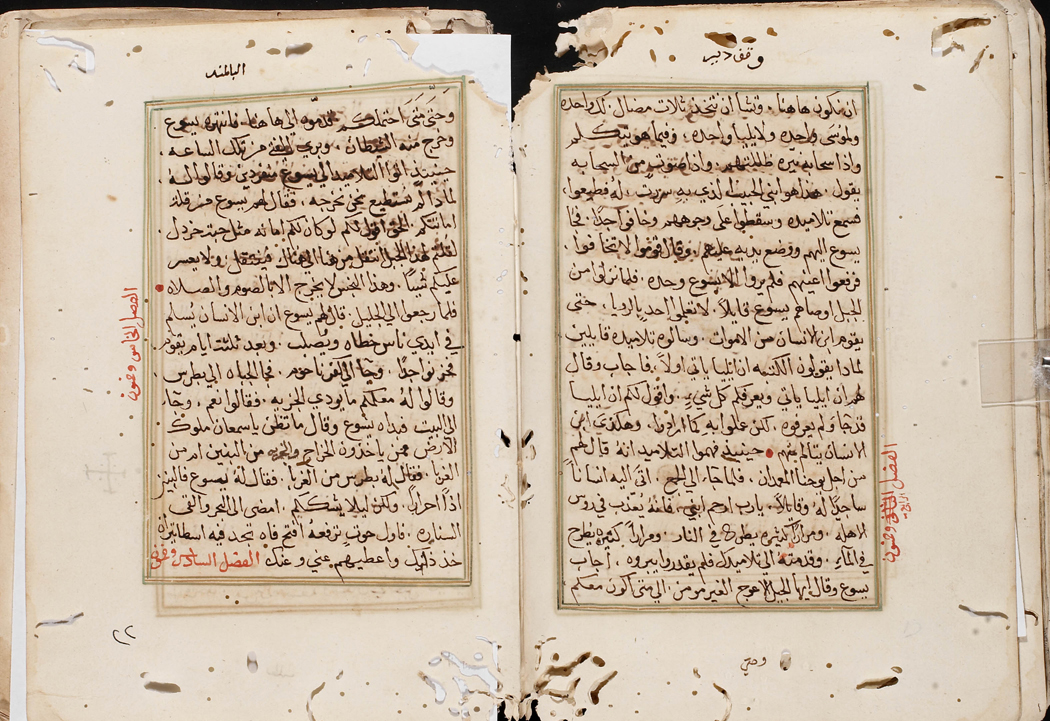 وقف دير
ان نكون هاهنا. وتشا ان نتخذ ثلاث مضال. لك واحده
ولموسى واحده ولايليا واحده. وفيما هو يتكلم
واذا سحابه نيره ظللتهم. واذا صوت من السحابه
يقول. هذا هو ابني الحبيب الذي به سررت. له فطيعوا.
فسمع تلاميده وسقطوا على وجوههم وخافوا جدًا. فجا
يسوع اليهم ووضع يديه عليهم. وقال قوموا لا تخافوا
فرفعوا اعينهم فلم يروا الا يسوع وحده. فلما نزلوا من
الجبل اوصاهم يسوع قايلاً. لا تعلموا احد بالرويا. حتى
يقوم ابن الانسان من الاموات. وسالوه تلاميده قايلين
لماذا يقولون الكتبه ان ايليا ياتي اولاً. فاجاب وقال
لهم ان ايليا ياتي ويعرفكم كل شي. واقول لكم ان ايليا
قد جا ولم يعرفوه. لكن عملوا به كما ارادوا. وهكدى ابن
الانسان يتالم منهم. حينيذ فهموا التلاميد انه قال لهم
من اجل يوحنا المعمدان. فلما جاء الى الجمع. اتى اليه انسانًا
ساجدًا له وقايلاً. يارب ارحم ابني. فانه يعذب في روس
الاهله. ومرارً كثيره يطرح في النار. ومرارً كثيره يطرح
في الماء. وقدمته الى تلاميدك فلم يقدروا يبروه. اجاب
يسوع وقال ايها الجيل الاعوج الغير مومن. الى متى اكون معكم
الفصل وخمسون
الرابع
وحتى
البلمند
وحتى متى احتملكم قدموه الى هاهنا. فانتهره يسوع
وخرج منه الشيطان. وبري الفتى من تلك الساعه.
حينيذ اتوا التلاميد الى يسوع منفردين وقالوا له
لماذا لم نستطيع نحن نخرجه. فقال لهم يسوع من قلة
امانتكم. الحق اقول لكم لو كان لكم امانه مثل حبة خردل
لقلتم لهذا الجبل انتقل من هنا الى هناك فينتقل. ولا يعسر
عليكم شيًا. وهذا الجنس لا يخرج الا بالصوم والصلاه
فلما رجعوا الى الجليل. قال لهم يسوع ان ابن الانسان يُسلم
في ايدي ناس خطاه ويُصلب. وبعد ثلثت ايام يقوم
فحزنوا جدًا. وجا الى كفرناحوم. فجا الجباه الى بطرس
وقالوا له معلمكم ما يودي الجزيه. فقالوا نعم. وجاء
الى البيت فبداه يسوع وقال ما تظن ياسمعان ملوك
الارض ممن ياخذون الخراج والجزيه من البنين ام من
الغربا. فقال له بطرس من الغربا. فقال له يسوع فالبنين
اذًا احرارً. ولكن ليلا نشككهم. امضى الى البحر والقى
الصناره. فاول حوت ترفعه افتح فاه تجد فيه اسطاتير
خذ ذلك واعطيهم عني وعنك الفصل السادس وخمسون
الفصل الخامس وخمسون
٢٢